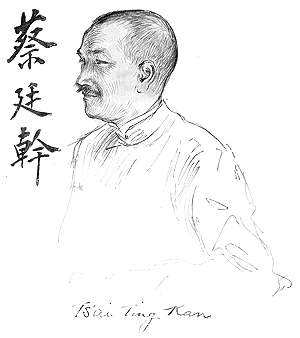 蔡廷幹
Ts'ai Ting Kan